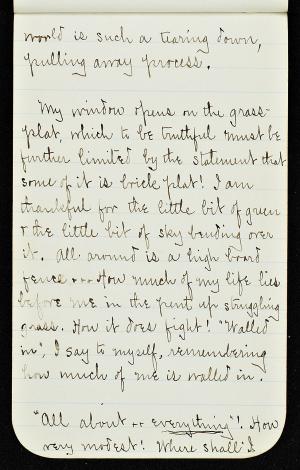 world is such a tearing down,
pulling away process.
My window opens on the grass-
plat, which to be truthful must be
further limited by the statement that
some of it is brick plat! I am
thankful for the little bit of green
& the little bit of sky bending over
it. All around is a high board
fence... How much of my life lies
before me in the pent up struggling
grass. How it does fight! "Walled
in", I say to myself, remembering
how much of me is walled in.
"All about -- everything"! How
very modest! Where shall I